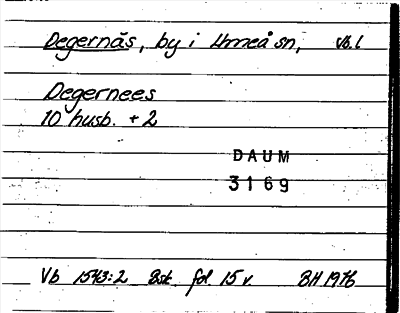 Degernäs, by i Umeå sn, Vb. l
Degernees
10 husb. + 2
DAUM
3169
Vb 1543:2 Bsk fol. 15 v. BH 1976